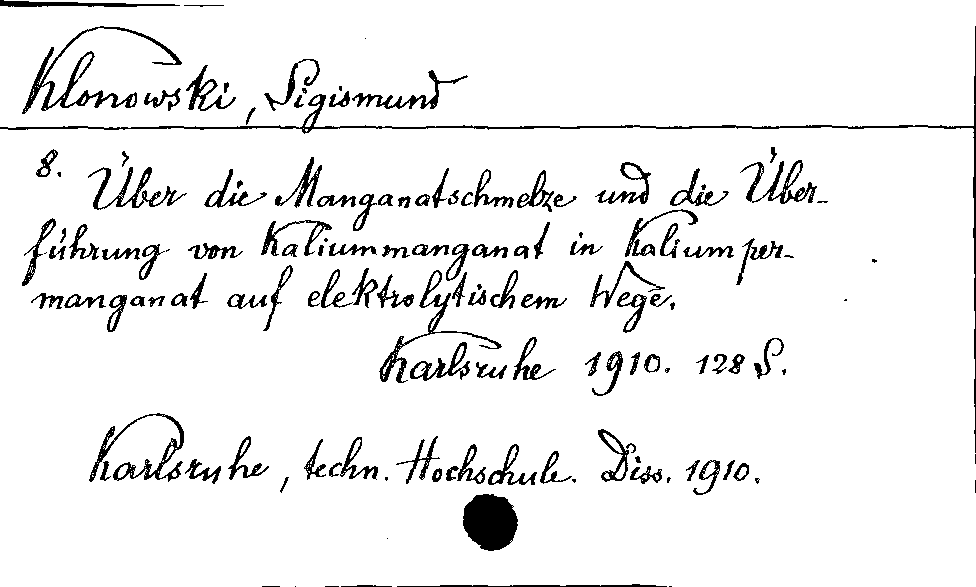 Klonowski, Sigismund
8. Über die Manganatschmelze und die Über-
führung von Kaliummanganat in Kaliumper-
manganat auf elektrolytischem Wege.
Karlsruhe 1910. 128 S.
Karlsruhe, techn. Hochschule. Diss. 1910.